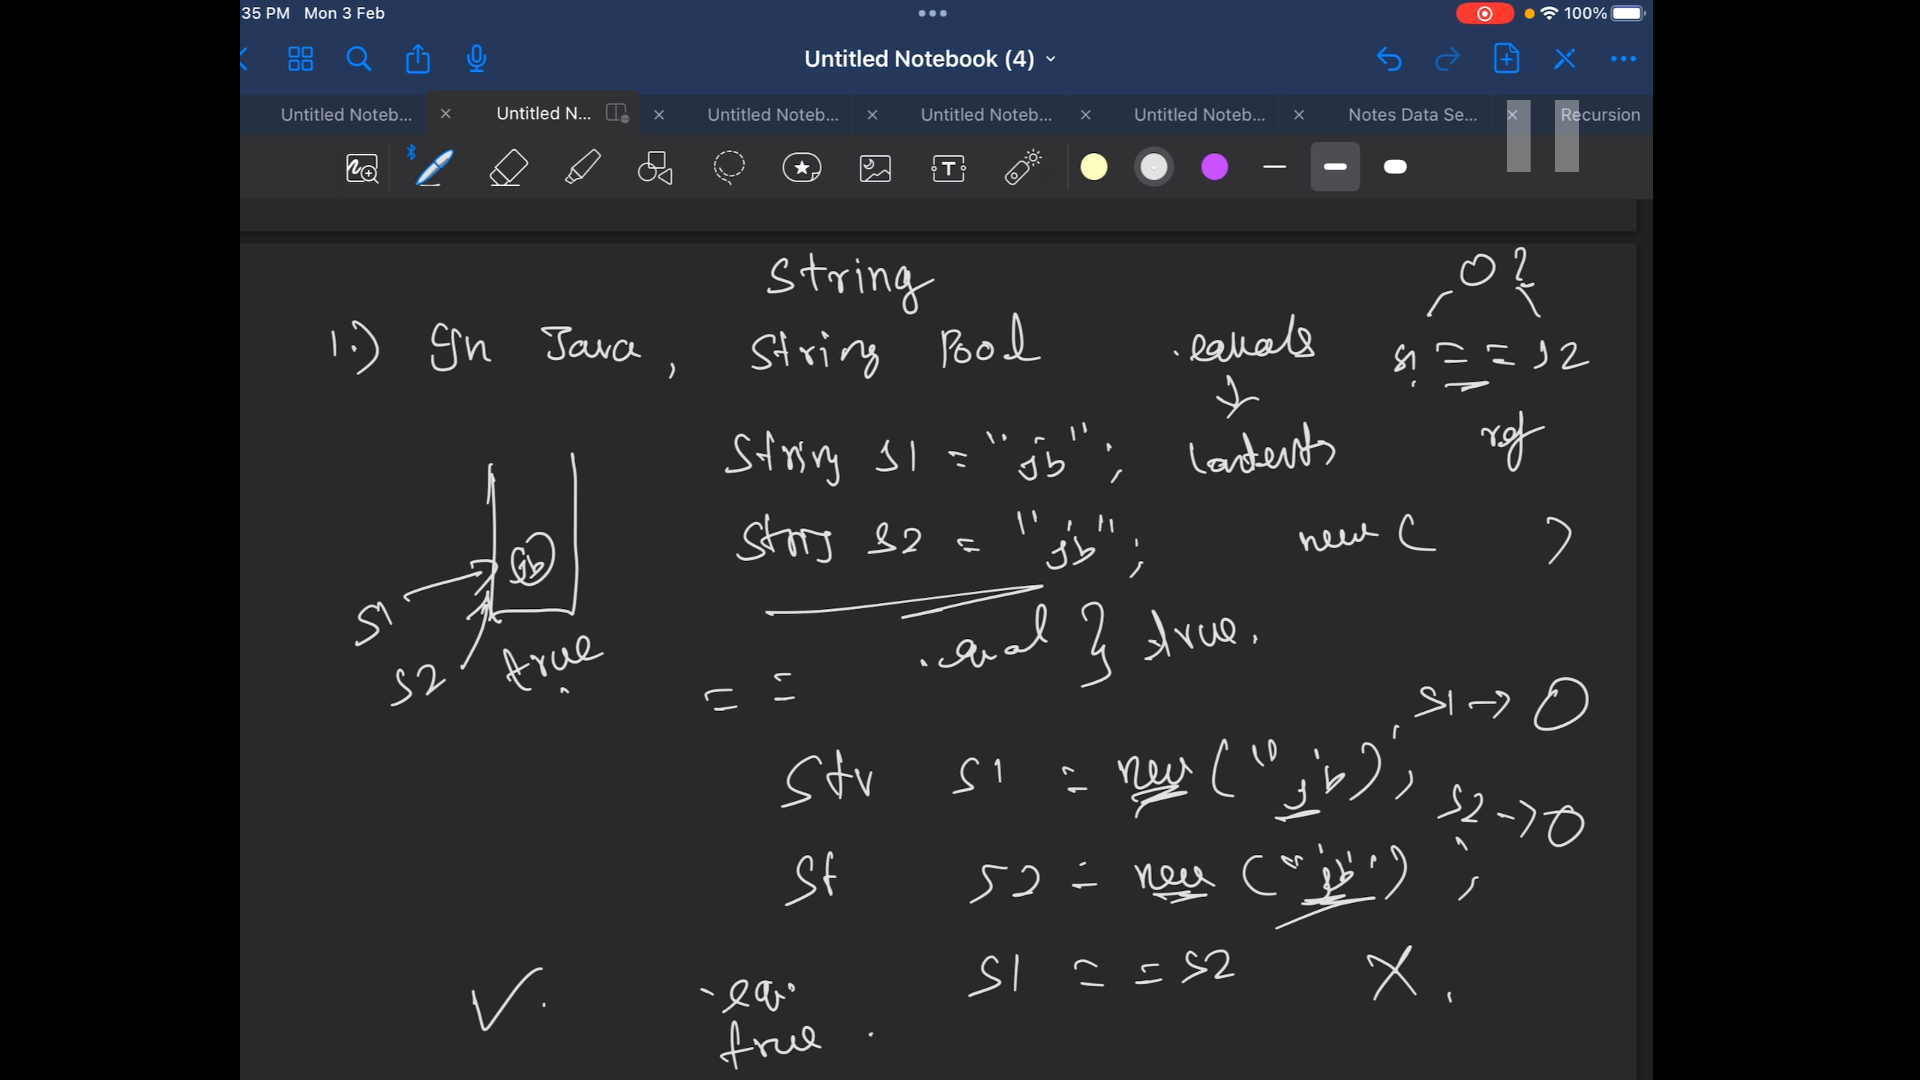 35 PM Mon 3 Feb
100%
Untitled Notebook (4)
Untitled Noteb...
Untitled N...
Untitled Noteb...
Untitled Noteb...
Untitled Noteb...
Notes Data Se...
Recursion
String
O ?
1.) In Java, String Pool
.equals
s1 == s2
String s1 = "jb";
contents
ref
String s2 = "jb";
new ( )
jb
s1
s2
true
.equal } true.
==
s1 -> O
Str s1 = new ("jb");
s2 -> O
St s2 = new ("jb");
s1 == s2 X.
.eq.
true.